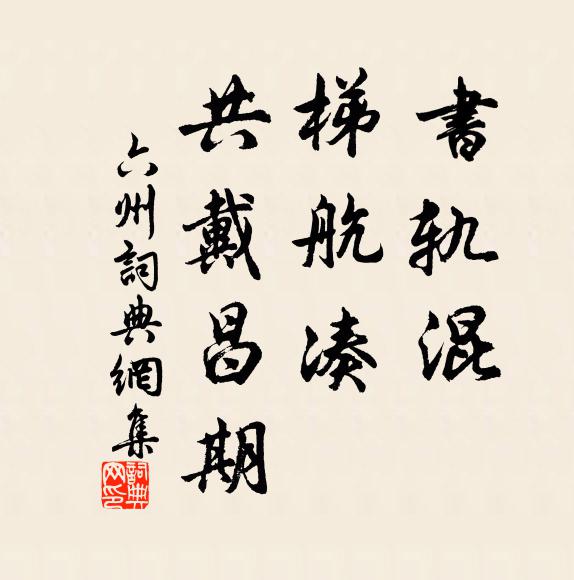 書軌混
梯航湊
共戴昌期
六州詞典網集
詞典
网印